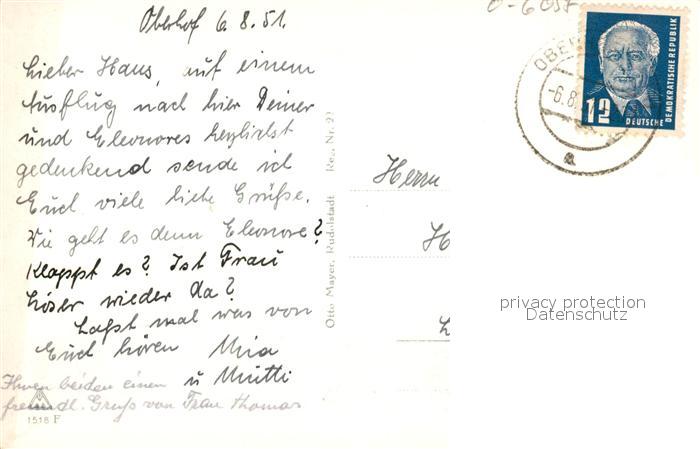 Oberhof 6.8.51.
Lieber Hans, auf einem
Ausflug nach hier Deiner
und Eleonores herzlichst
gedenkend sende ich
Euch viele liebe Grüße.
Wie geht es denn Eleonore?
Klappt es? Ist Frau
Löser wieder da?
Laßt mal was von
Euch hören Mia
u Mutti
Ihnen beiden einen
freundl. Gruß von Frau Thomas
1518 F
Otto Mayer, Rudolstadt Reg. Nr. 21
Herrn
H
L
12
DEUTSCHE
DEMOKRATISCHE REPUBLIK
-6.8.
a
privacy protection
Datenschutz